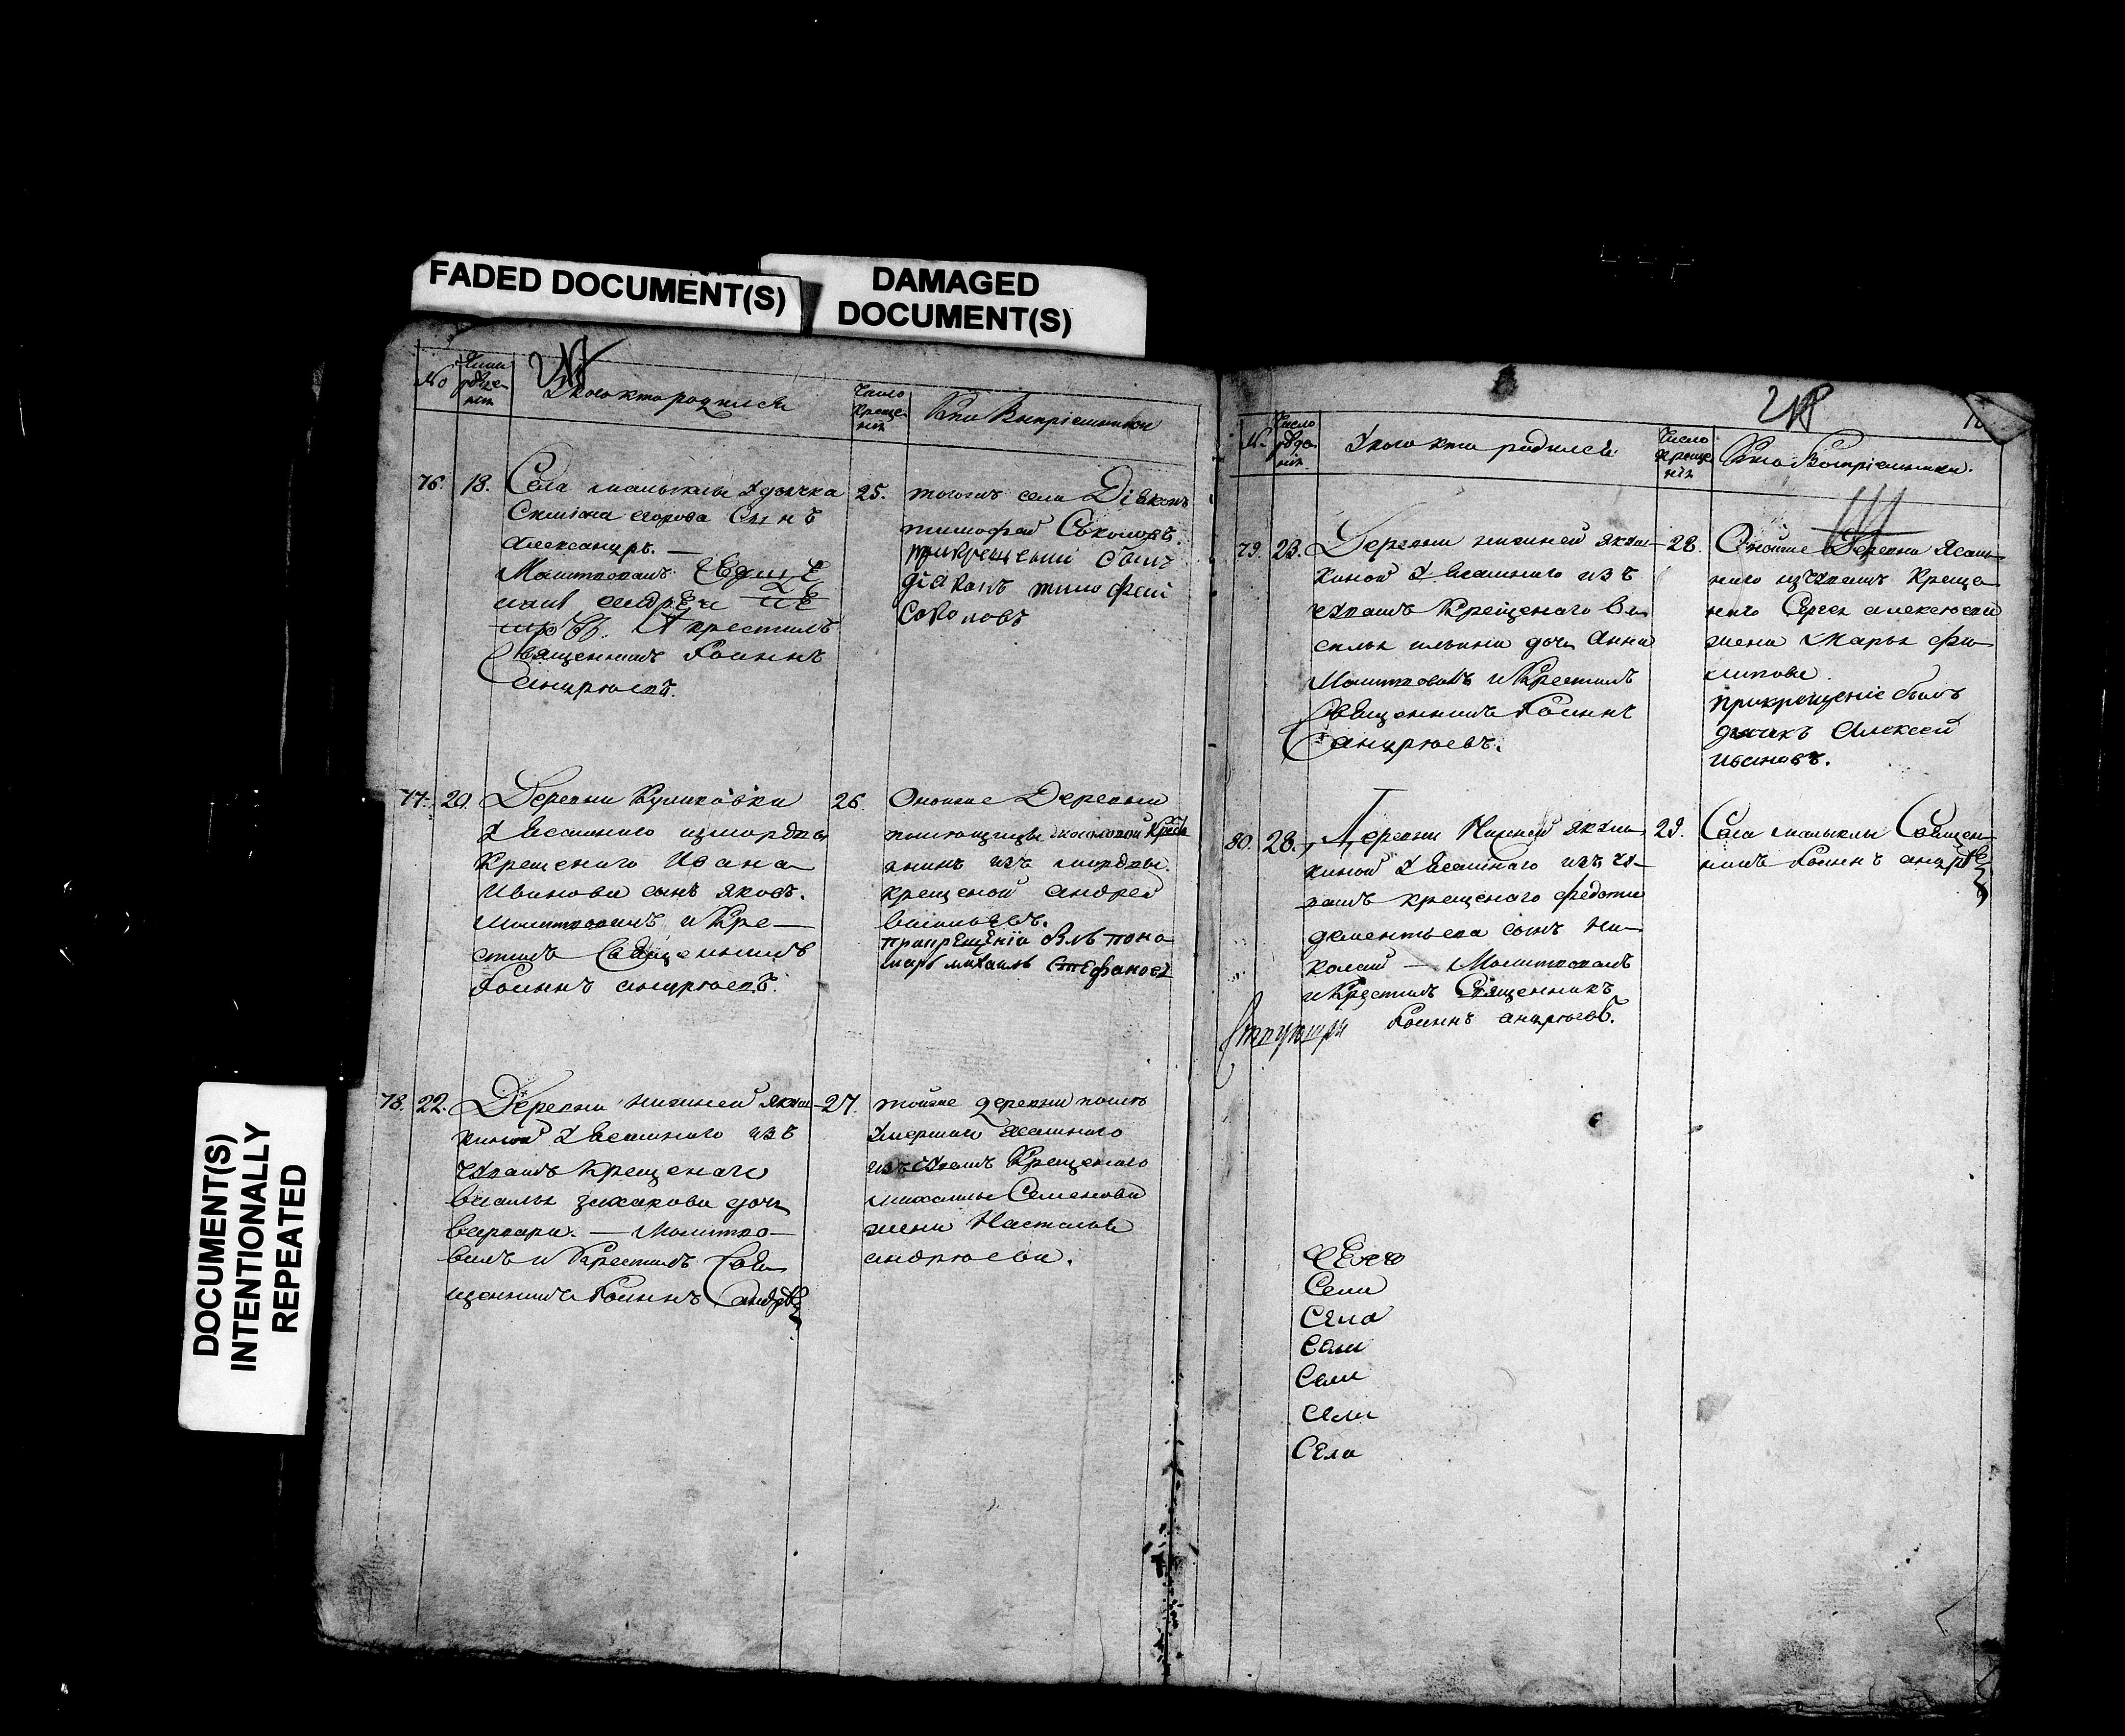 FADED DOCUMENT(S)
DAMAGED
DOCUMENT(S)
DOCUMENT(S)
INTENTIONALLY
REPEATED
№
Число рожде-
нія
У кого кто родился
Число
креще-
нія
Кто Воспріемники
76.
18.
Села малыклы Удьячка
егорова Сынъ
Александръ. —
Молитвовалъ
крестилъ
Священникъ Іоаннъ
Андреевъ.
25.
тогожъ села Діаконъ
тимофей Соколовъ.
прикрещеніи былъ
діаконъ тимофей
Соколовъ
77.
20.
Деревни Куликовки
У Ясашнаго измордвы
Крещенаго Ивана
Иванова сынъ яковъ.
Молитвовалъ и Кре—
стилъ Священникъ
Іоаннъ андреевъ.
26.
Оной же Деревни
анинъ изъ мордвы
крещеной андрей
васильевъ.
прикрещеніи былъ поно
марь михаилъ Стефановъ
78.
22.
Деревни нижней якуш—
киной У Ясашнаго изъ
чувашъ Крещенаго
захарова дочь
варвара. — Молитво—
валъ и Крестилъ Свя
щенникъ Іоаннъ Андреевъ
27.
тойже деревни
Умершаго Ясашнаго
изъ Чувашъ Крещенаго
Семенова
жена Наталья
андреева.
№
Число
рожде
нія.
У кого кто родился
Число
креще
нія
Кто Воспріемники.
79.
23.
Деревни нижней якуш—
киной У Ясашнаго изъ
чувашъ Крещенаго Ва
силья ильина дочь Анна
Молитвовалъ и Крестилъ
Священникъ Іоаннъ
Андреевъ.
28.
Оной же Деревни Ясаш—
наго изъ Чувашъ Креще
наго Сергея алексеева
жена Марья Фи
липова.
прикрещеніе былъ
дьячекъ Алексей
Ивановъ.
80.
28.
Деревни Нижней якуш
киной У Ясашнаго изъ чу—
вашъ крещенаго федота
дементьева сынъ Ни—
колай — Молитвовалъ
и Крестилъ Священникъ
Іоаннъ андреевъ.
29.
Села малыклы Священ—
никъ Іоаннъ андреевъ
Село
Села
Села
Села
Села
Села
Села